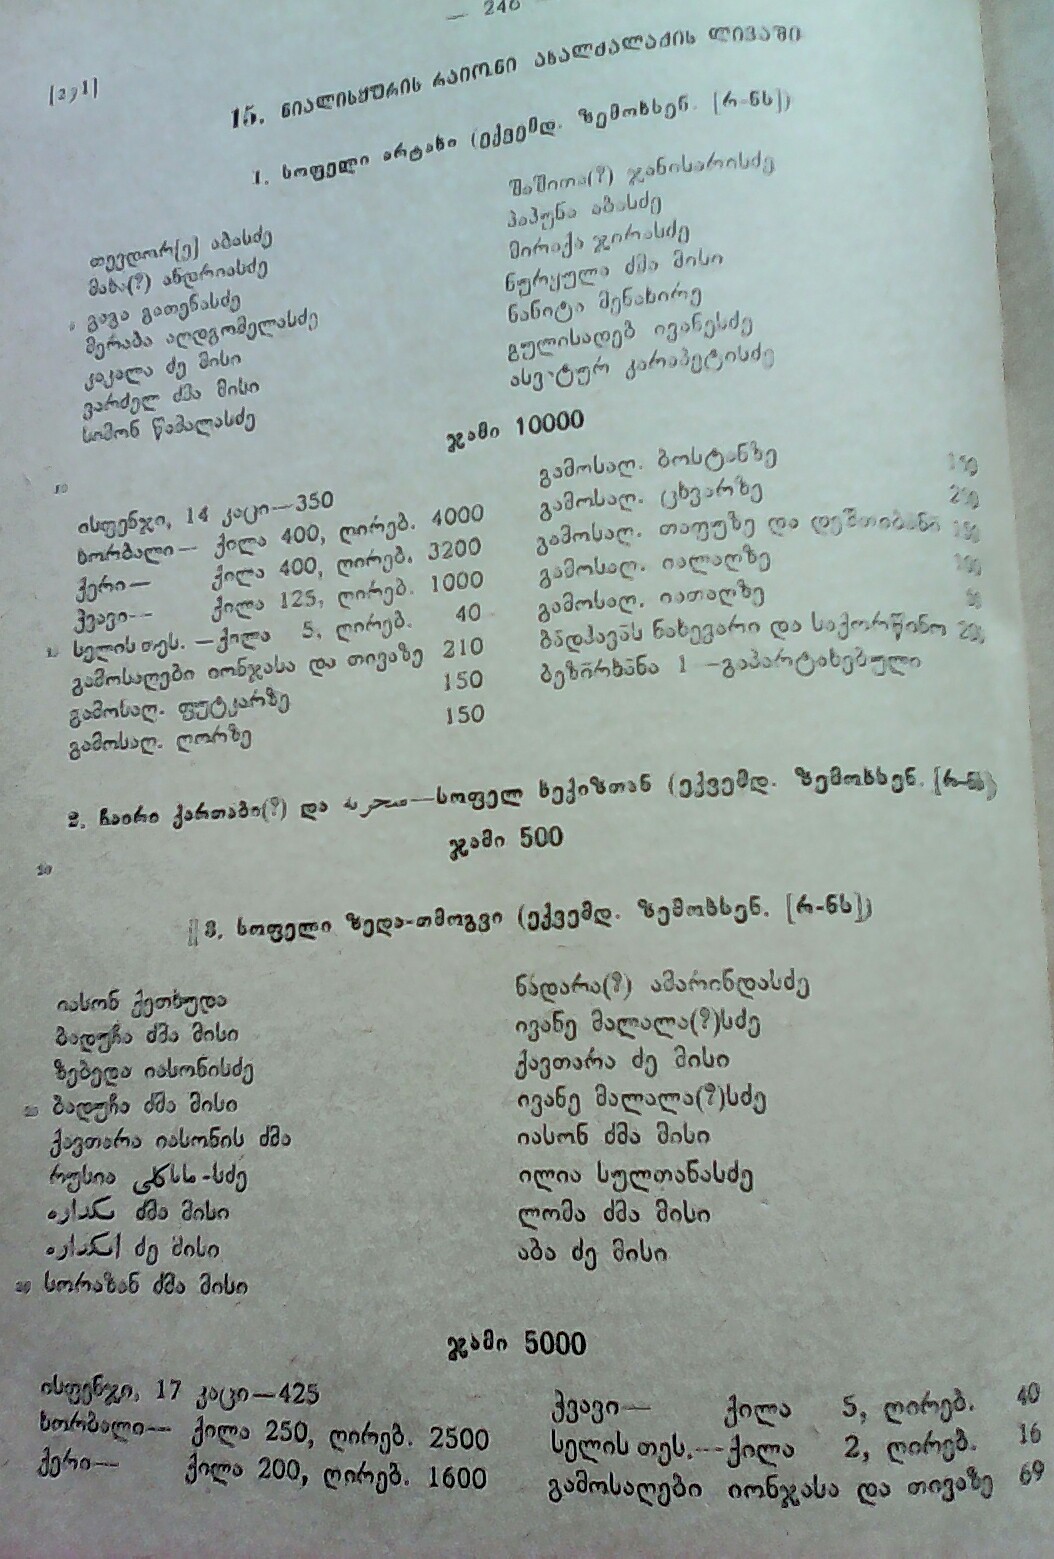 — 240 —
[291]
15. ნიალისყურის რაიონი ახალქალაქის ლივაში
1. სოფელი არტახი (ექვემდ. ზემოხსენ. [რ-ნს])
თევდორ[ე] აბასძე
მახა(?) ანდრიასძე
გაგა გათენასძე
მერაბა აღდგომელასძე
კაკალა ძე მისი
ვარძელ ძმა მისი
სიმონ წამალასძე
შაშითა(?) ჯანისარისძე
პაპუნა აბასძე
მირაქა გირასძე
ნურყულა ძმა მისი
ნანიტა მენახირე
გულისადებ ივანესძე
კარაპეტისძე
ჯამი 10000
10
ისფენჯი, 14 კაცი—350
ხორბალი— ქილა 400, ღირებ. 4000
ქერი— ქილა 400, ღირებ. 3200
ჭვავი— ქილა 125, ღირებ. 1000
სელის თეს. —ქილა 5, ღირებ. 40
გამოსაღები იონჯასა და თივაზე 210
გამოსაღ. ფუტკარზე 150
გამოსაღ. ღორზე 150
გამოსაღ. ბოსტანზე
გამოსაღ. ცხვარზე
გამოსაღ. თაფუზე და დეშთიბანი
გამოსაღ. იალაღზე
გამოსაღ. იათაღზე
ბადჰავას ნახევარი და საქორწინო
ბეზირხანა 1 —გაპარტახებული
2. ჩაირი ქართაბი(?) და —სოფელ სექიზთან (ექვემდ. ზემოხსენ. [რ-ნს])
ჯამი 500
20
|| 3. სოფელი ზედა-თმოგვი (ექვემდ. ზემოხსენ. [რ-ნს])
იასონ ქეთხუდა
ბადუჩა ძმა მისი
ზებედა იასონისძე
ბადუჩა ძმა მისი
ქავთარა იასონის ძმა
რუსია -სძე
ძმა მისი
ძე მისი
სორაზან ძმა მისი
ნადარა(?) ამარინდასძე
ივანე მალალა(?)სძე
ქავთარა ძე მისი
ივანე მალალა(?)სძე
იასონ ძმა მისი
ილია სულთანასძე
ლომა ძმა მისი
აბა ძე მისი
ჯამი 5000
ისფენჯი, 17 კაცი—425
ხორბალი— ქილა 250, ღირებ. 2500
ქერი— ქილა 200, ღირებ. 1600
ჭვავი— ქილა 5, ღირებ. 40
სელის თეს.—ქილა 2, ღირებ. 16
გამოსაღები იონჯასა და თივაზე 69